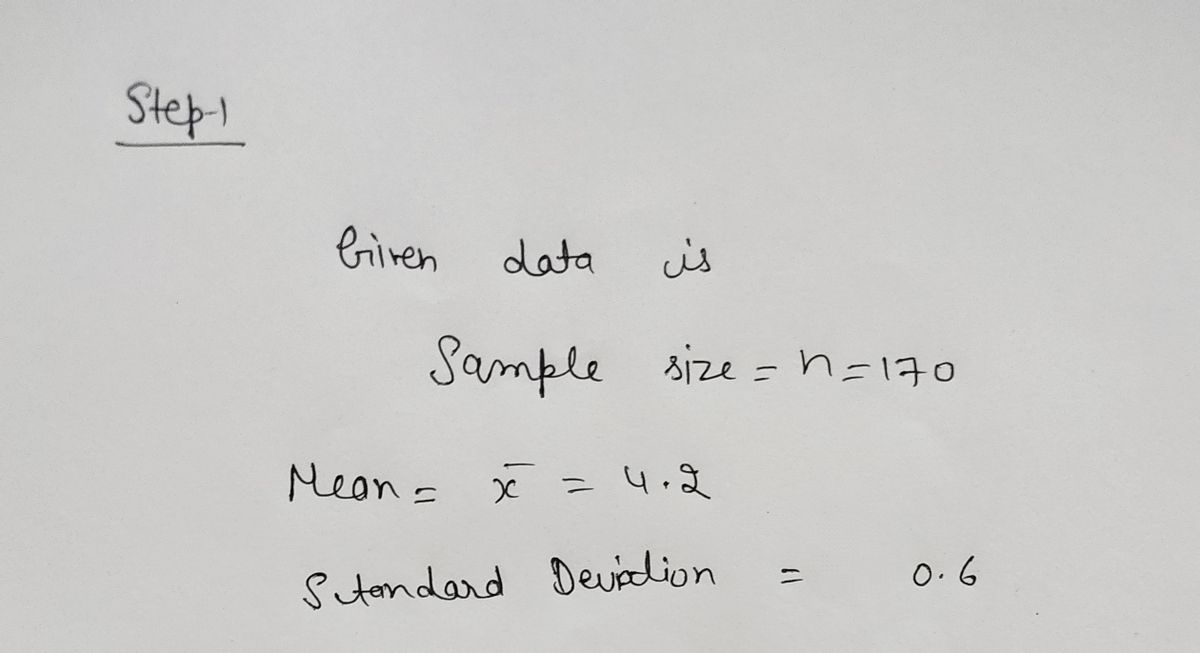 Step-1
Given data is
Sample size = n = 170
Mean = x̄ = 4.2
Standard Deviation = 0.6